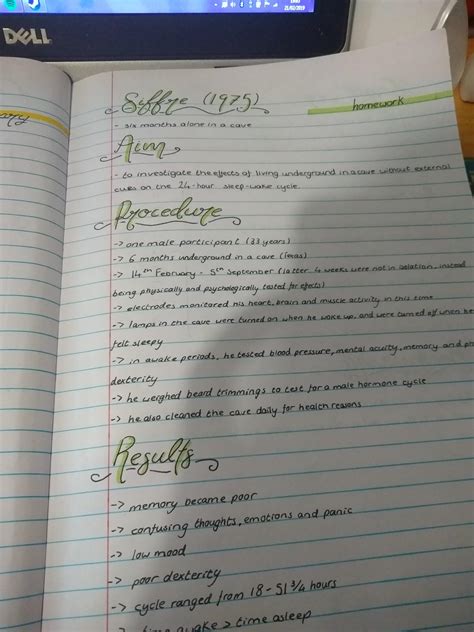 DELL
21/02/2019
Siffre (1975)
homework
- six months alone in a cave
Aim
- to investigate the effects of living underground in a cave without external
cues on the 24-hour sleep-wake cycle.
Procedure
-> one male participant (33 years)
-> 6 months underground in a cave (Texas)
-> 14th February - 5th September (latter 4 weeks were not in isolation, instead
being physically and psychologically tested for effects)
-> electrodes monitored his heart, brain and muscle activity in this time
-> lamps in the cave were turned on when he woke up, and were turned off when he
felt sleepy
-> in awake periods, he tested blood pressure, mental acuity, memory and
dexterity
-> he weighed beard trimmings to test for a male hormone cycle
-> he also cleaned the cave daily for health reasons
Results
-> memory became poor
-> confusing thoughts, emotions and panic
-> low mood
-> poor dexterity
-> cycle ranged from 18 - 51 3/4 hours
-> time awake > time asleep